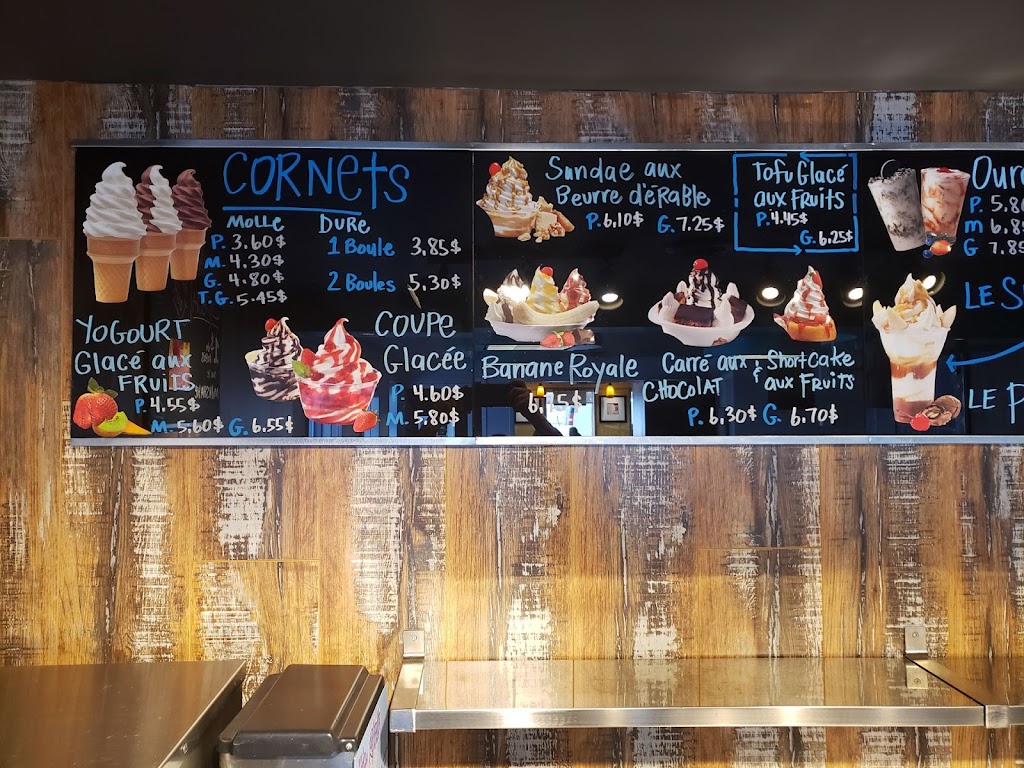 CORNETS
MOLLE
P. 3.60$
M. 4.30$
G. 4.80$
T.G. 5.45$
DURE
1 Boule 3,85$
2 Boules 5,30$
YOGOURT
Glacé aux
FRUITS
P. 4.55$
M. 5,60$ G. 6.55$
COUPE
Glacée
P. 4.60$
M. 5,80$
Sundae aux
Beurre d'éRable
P. 6,10$ G. 7.25$
Tofu Glacé
aux FRuits
P. 4.45$
G. 6.25$
Banane Royale
Carré aux
CHOCOLAT
& ShortCake
aux FRuits
P. 6,30$ G. 6,70$
P. 5.8
M 6,8
G 7.8
LE
LE